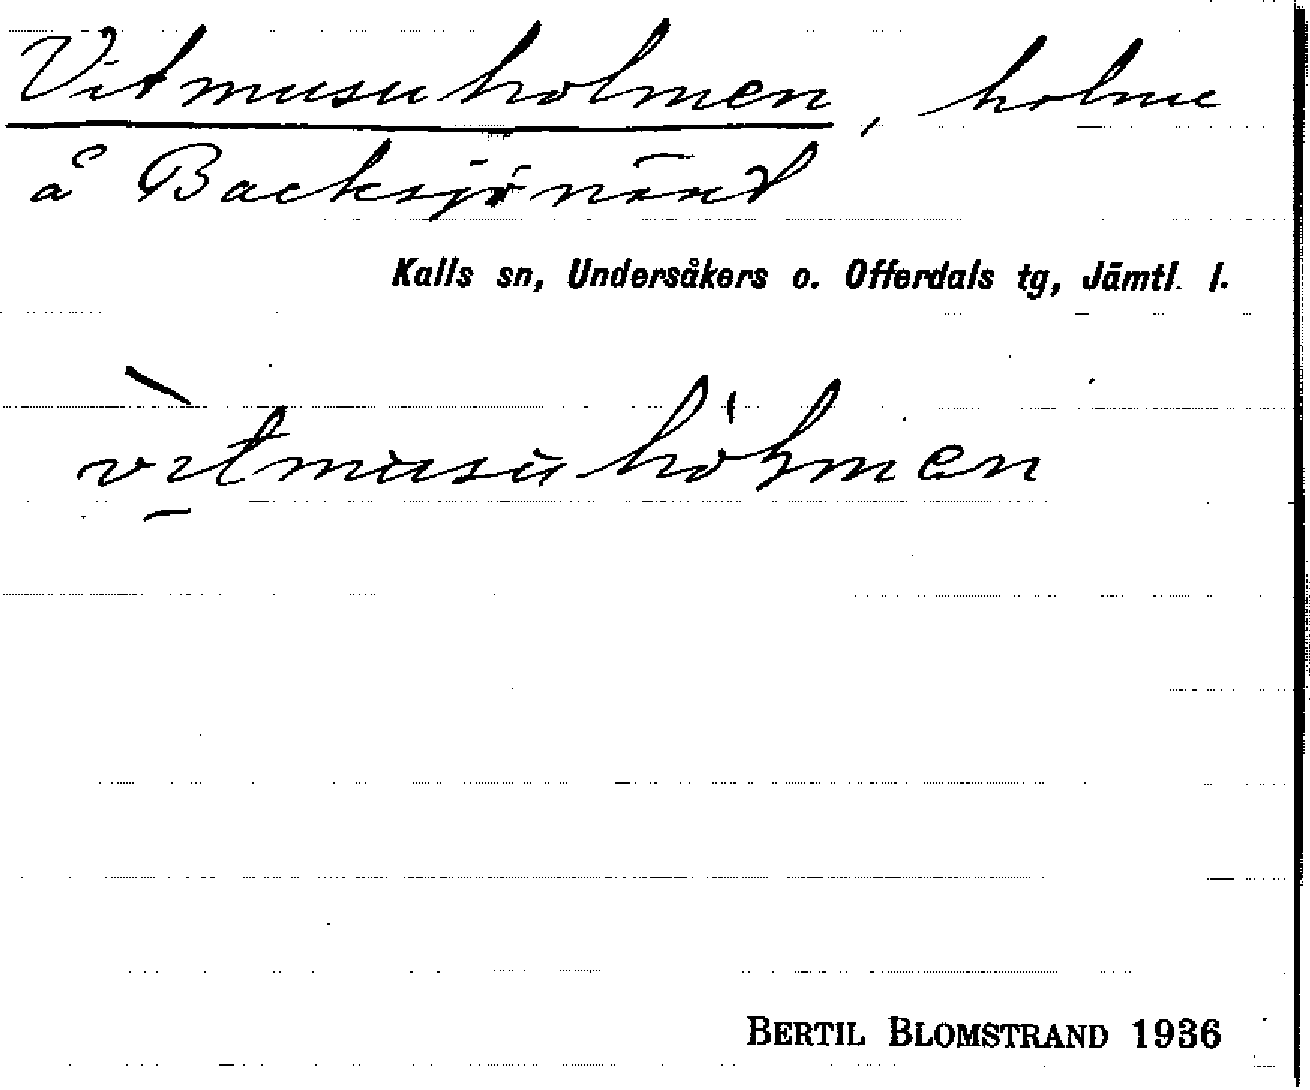 Vitmusuholmen, holme
å Backsjönäset
Kalls sn, Undersåkers o. Offerdals tg, Jämtl. l.
vìtmusuhòlmen
BERTIL BLOMSTRAND 1936